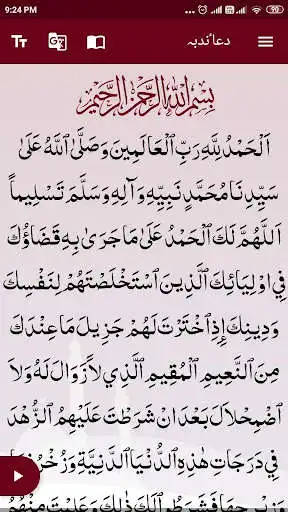 9:24 PM
دعائ ندبہ
بِسْمِ اللهِ الرَّحْمٰنِ الرَّحِيْمِ
اَلْحَمْدُ لِلّٰهِ رَبِّ الْعَالَمِينَ وَصَلَّى اللّٰهُ عَلٰى
سَيِّدِنَا مُحَمَّدٍ نَبِيِّهِ وَآلِهِ وَسَلَّمَ تَسْلِيماً
اَللّٰهُمَّ لَكَ الْحَمْدُ عَلٰى مَا جَرٰى بِهِ قَضَاؤُكَ
فِي اَوْلِيَائِكَ الَّذِينَ اسْتَخْلَصْتَهُمْ لِنَفْسِكَ
وَدِينِكَ اِذِ اخْتَرْتَ لَهُمْ جَزِيلَ مَا عِنْدَكَ
مِنَ النَّعِيمِ الْمُقِيمِ الَّذِي لَا زَوَالَ لَهُ وَلَا
اضْمِحْلَالَ بَعْدَ اَنْ شَرَطْتَ عَلَيْهِمُ الزُّهْدَ
فِي دَرَجَاتِ هٰذِهِ الدُّنْيَا الدَّنِيَّةِ وَزُخْرُفِهَا
وَزِبْرِجِهَا فَشَرَطُوا لَكَ ذٰلِكَ وَعَلِمْتَ مِنْهُمُ